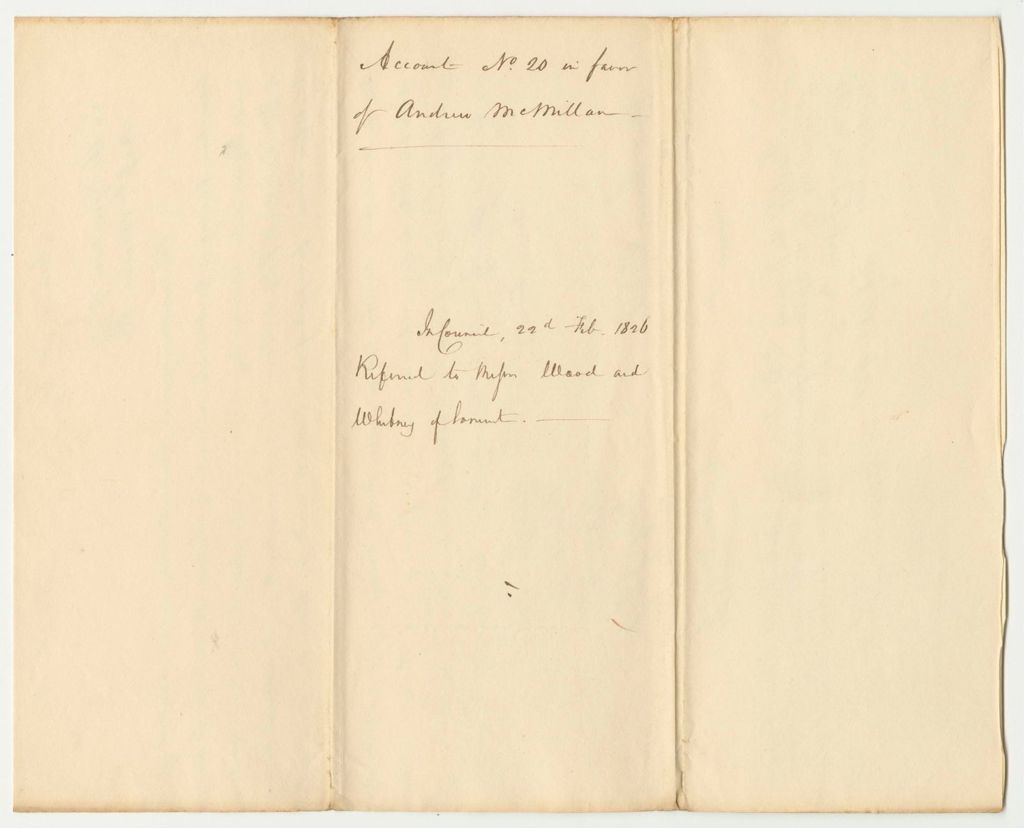 Account No. 20 in favor
of Andrew McMillan
In Council, 22d Feb. 1826
Referred to Messrs Wood and
Whitney of